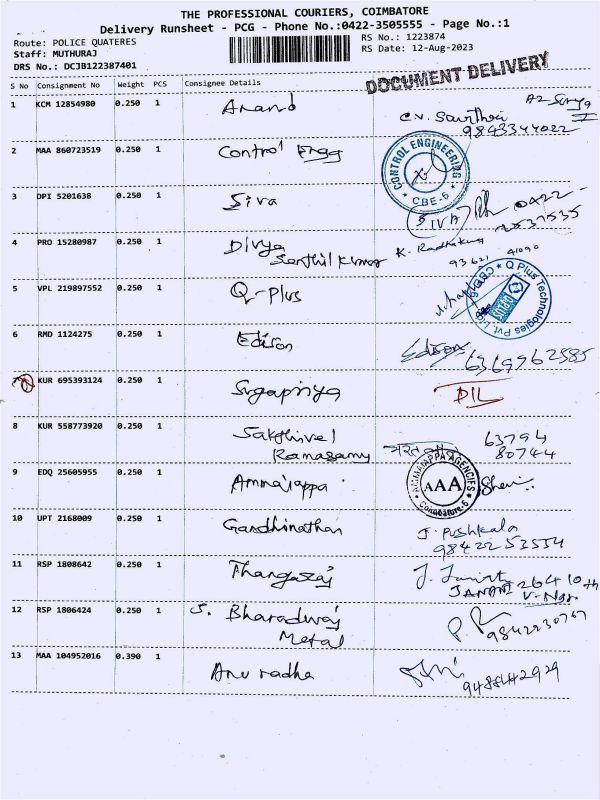 THE PROFESSIONAL COURIERS, COIMBATORE
Delivery Runsheet - PCG - Phone No.:0422-3505555 - Page No.:1
Route: POLICE QUATERES
RS No.: 1223874
Staff: MUTHURAJ
RS Date: 12-Aug-2023
DRS No.: DCJB122387401
DOCUMENT DELIVERY
S No Consignment No Weight PCS Consignee Details
1 KCM 12854980 0.250 1 Anand
C.V. Savithri
9843344022
2 MAA 860723519 0.250 1 Control Engg
CONTROL ENGINEERING
CBE-6
3 DPI 5201638 0.250 1 Siva
SIVA Ph 0422-
4 PRO 15280987 0.250 1 Divya
Senthil Kumar
93621 41090
5 VPL 219897552 0.250 1 Q-Plus
Q Plus Technologies Pvt. Ltd.
QPLUS
6 RMD 1124275 0.250 1 Edison
Edison 6369962585
7 KUR 695393124 0.250 1 Sugapriya
DIL
8 KUR 558773920 0.250 1 Sakthivel
Ramasamy
63794
80744
9 EDQ 25605955 0.250 1 Ammaiappa
AMMAIAPPA AGENCIES
AAA
Coimbatore-6
10 UPT 2168009 0.250 1 Gandhinathan
J. Pushkala
98422 53554
11 RSP 1808642 0.250 1 Thangaraj
12 RSP 1806424 0.250 1 J. Bharadwaj
Metal
9842230767
13 MAA 104952016 0.390 1 Anuradha
9488442929